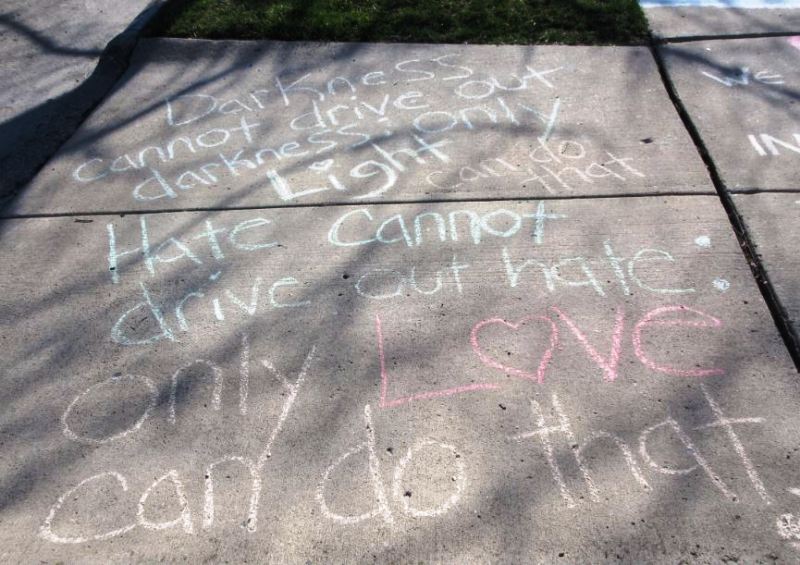 Darkness
cannot drive out
darkness: only
Light can do
that
Hate Cannot
drive out hate:
only Love
can do that.
WE
IN